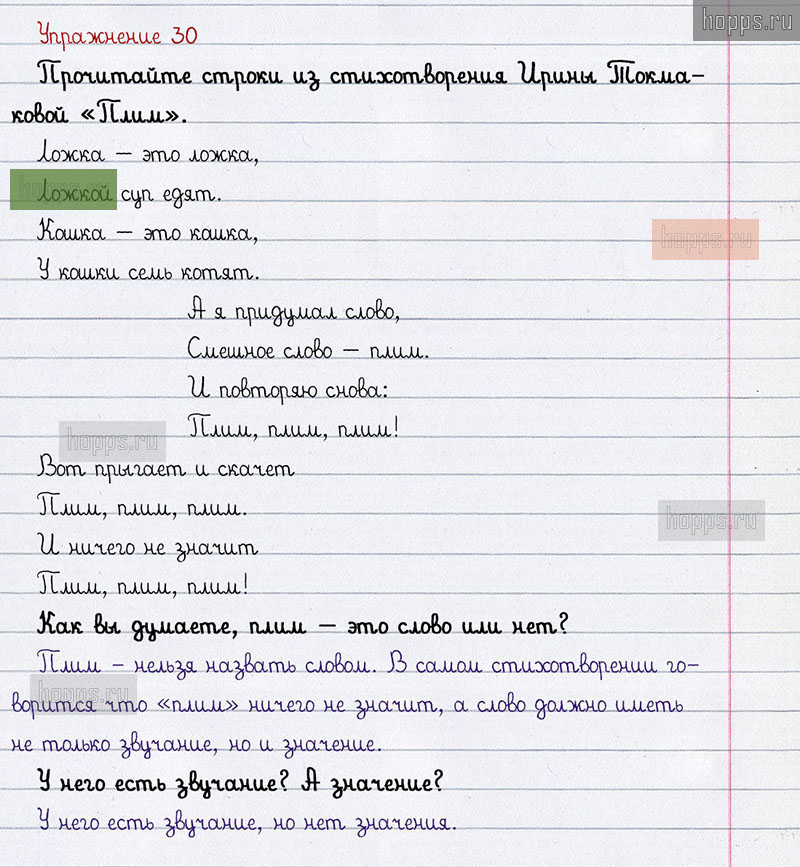 hopps.ru
Упражнение 30
Прочитайте строки из стихотворения Ирины Токма-
ковой «Плим».
Ложка — это ложка,
Ложкой суп едят.
Кошка — это кошка,
hopps.ru
У кошки семь котят.
А я придумал слово,
Смешное слово — плим.
И повторяю снова:
Плим, плим, плим!
hopps.ru
Вот прыгает и скачет
Плим, плим, плим.
hopps.ru
И ничего не значит
Плим, плим, плим!
Как вы думаете, плим — это слово или нет?
Плим – нельзя назвать словом. В самом стихотворении го-
hopps.ru
ворится что «плим» ничего не значит, а слово должно иметь
не только звучание, но и значение.
У него есть звучание? А значение?
У него есть звучание, но нет значения.